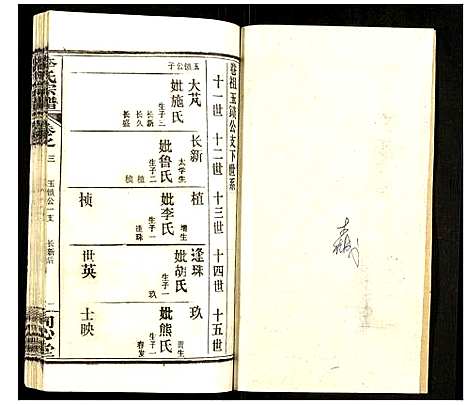 卷祖玉鎖公支下世系
十一世
十二世
十三世
十四世
十五世
玉鎖公子
大芃
妣施氏
生子三
长新
长久
长盛
长新
太学生
妣鲁氏
生子二
植
桢
植
增生
妣李氏
生子一
逢珠
逢珠
妣胡氏
生子一
玖
玖
妣熊氏
生子一
春发
桢
世英
士映
氏宗譜
卷之三
玉鎖公一支
长新后
同心堂